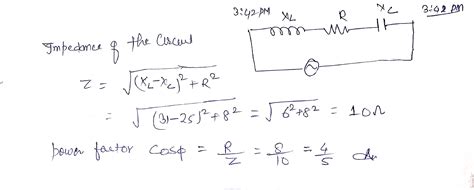 3:42 PM X_L R X_C
Impedance of the Circuit
Z = √((X_L-X_C)² + R²)
= √((31-25)² + 8²) = √(6²+8²) = 10Ω
power factor Cosφ = R/Z = 8/10 = 4/5